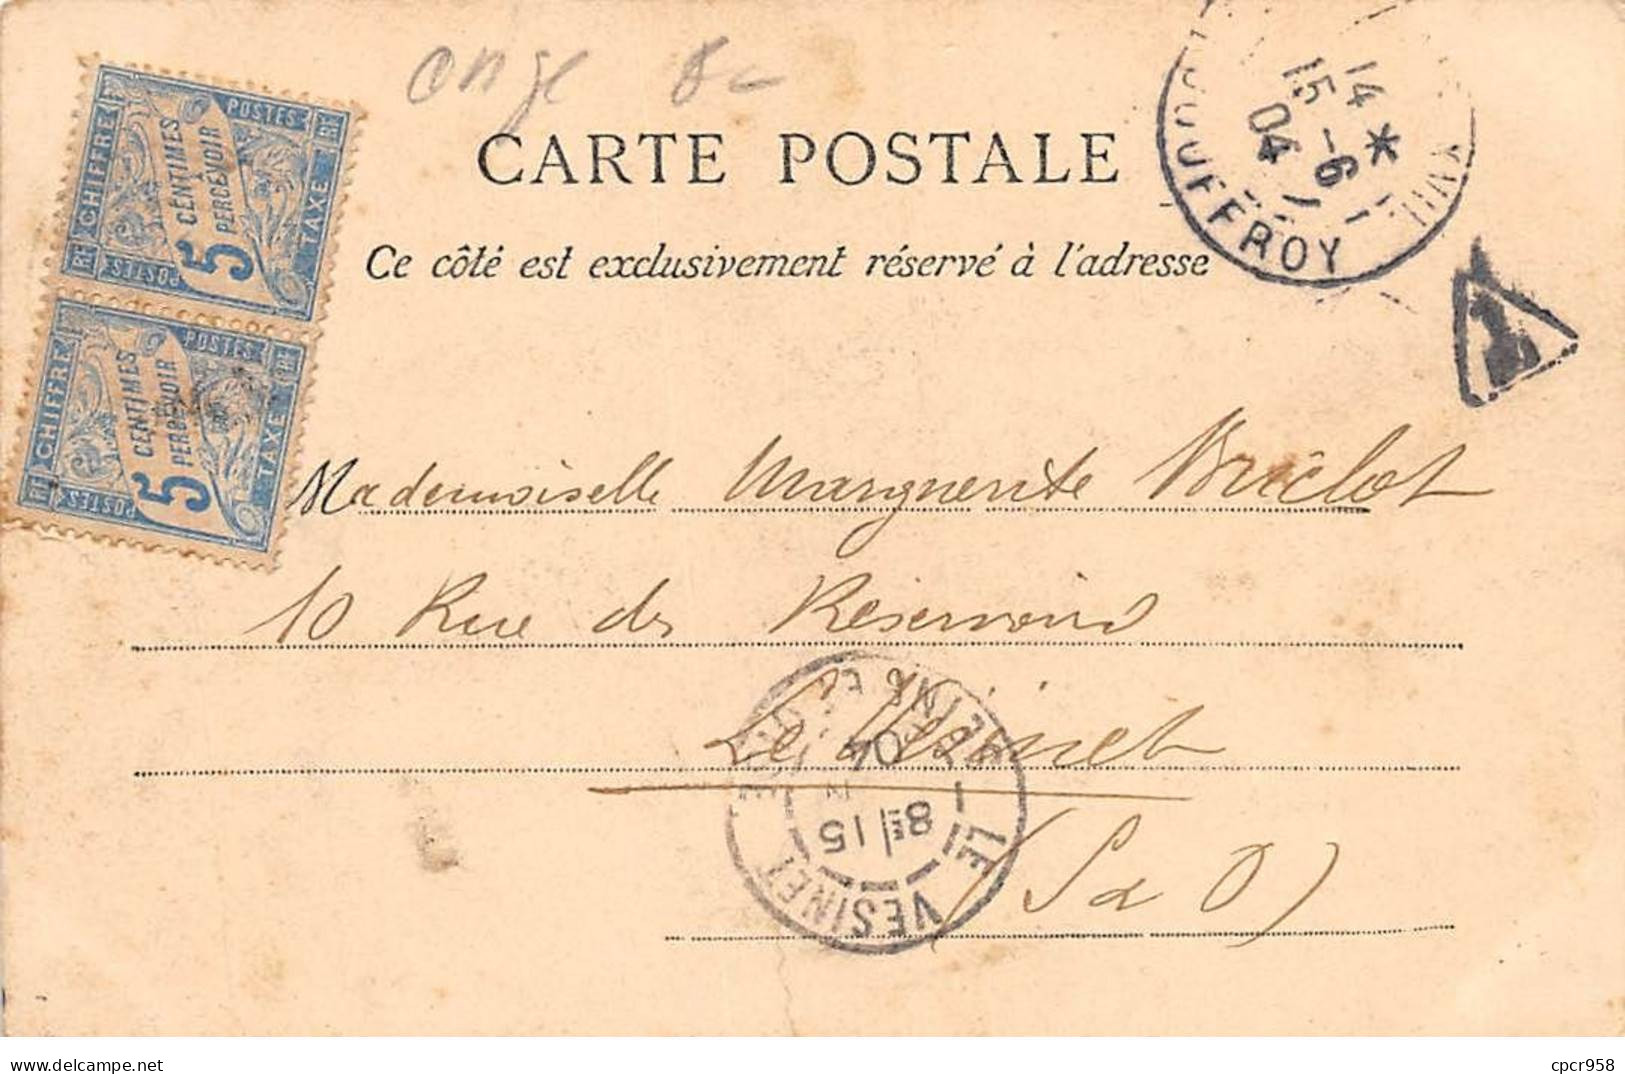 onze
CARTE POSTALE
Ce côté est exclusivement réservé à l'adresse
CHIFFRE
POSTES
5
CENTIMES
A
PERCEVOIR
TAXE
POSTES
RF
CHIFFRE
POSTES
5
CENTIMES
A
PERCEVOIR
TAXE
POSTES
RF
14 *
15 -6
04
JOUFFROY
XVII
T
Mademoiselle Marguerite
10 Rue des Réservoirs
Le Vésinet
(S & O)
LE VESINET
8E 15
04
DELCAMPE.NET
cpcr958